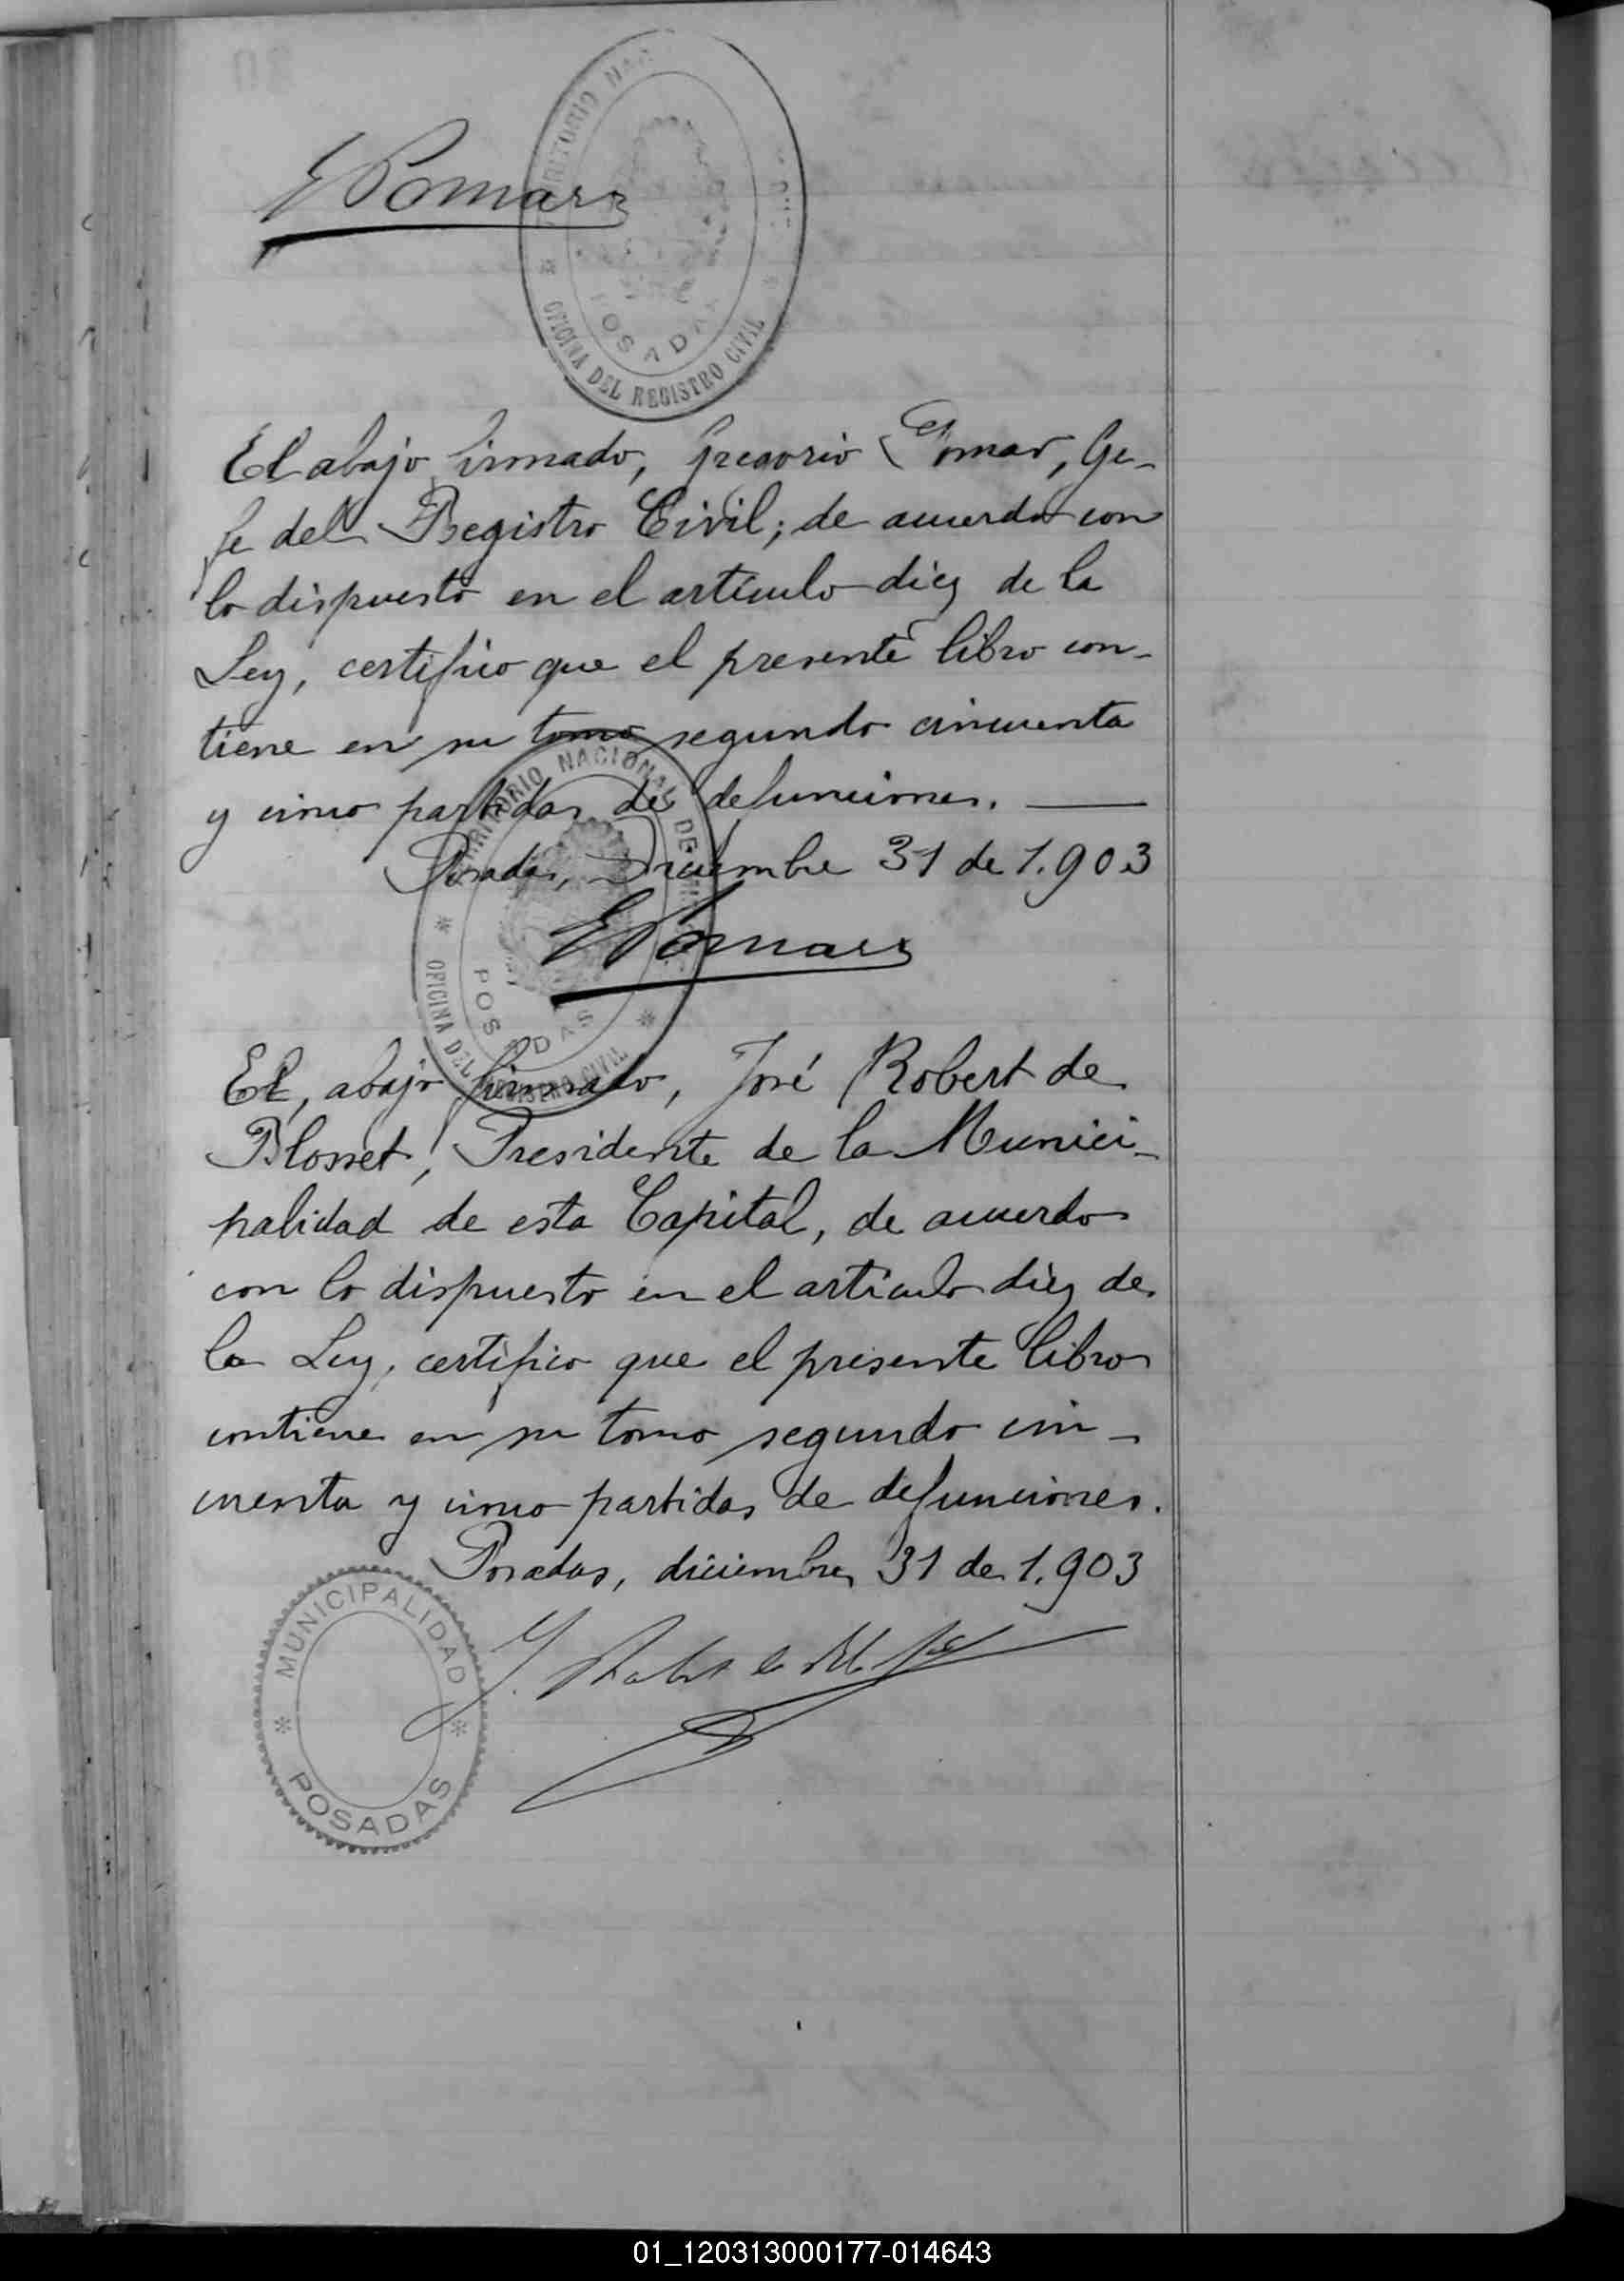 GPomar
TERRITORIO NAC
OFICINA DEL REGISTRO CIVIL
POSADAS
El abajo firmado, Gregorio Pomar, Ge-
fe del Registro Civil; de acuerdo con
lo dispuesto en el artículo diez de la
Ley, certifico que el presente libro con-
tiene en su tomo segundo cincuenta
y cinco partidas de defunciones.
Posadas, Diciembre 31 de 1.903
TERRITORIO NACIONAL DE
OFICINA DEL REGISTRO CIVIL
POSADAS
GPomar
El, abajo firmado, José Robert de
Blosset, Presidente de la Munici-
palidad de esta Capital, de acuerdo
con lo dispuesto en el artículo diez de
la Ley, certifico que el presente libro
contiene en su tomo segundo cin-
cuenta y cinco partidas de defunciones.
Posadas, diciembre 31 de 1.903
MUNICIPALIDAD
POSADAS
J. Robert de Blosset
01_120313000177-014643